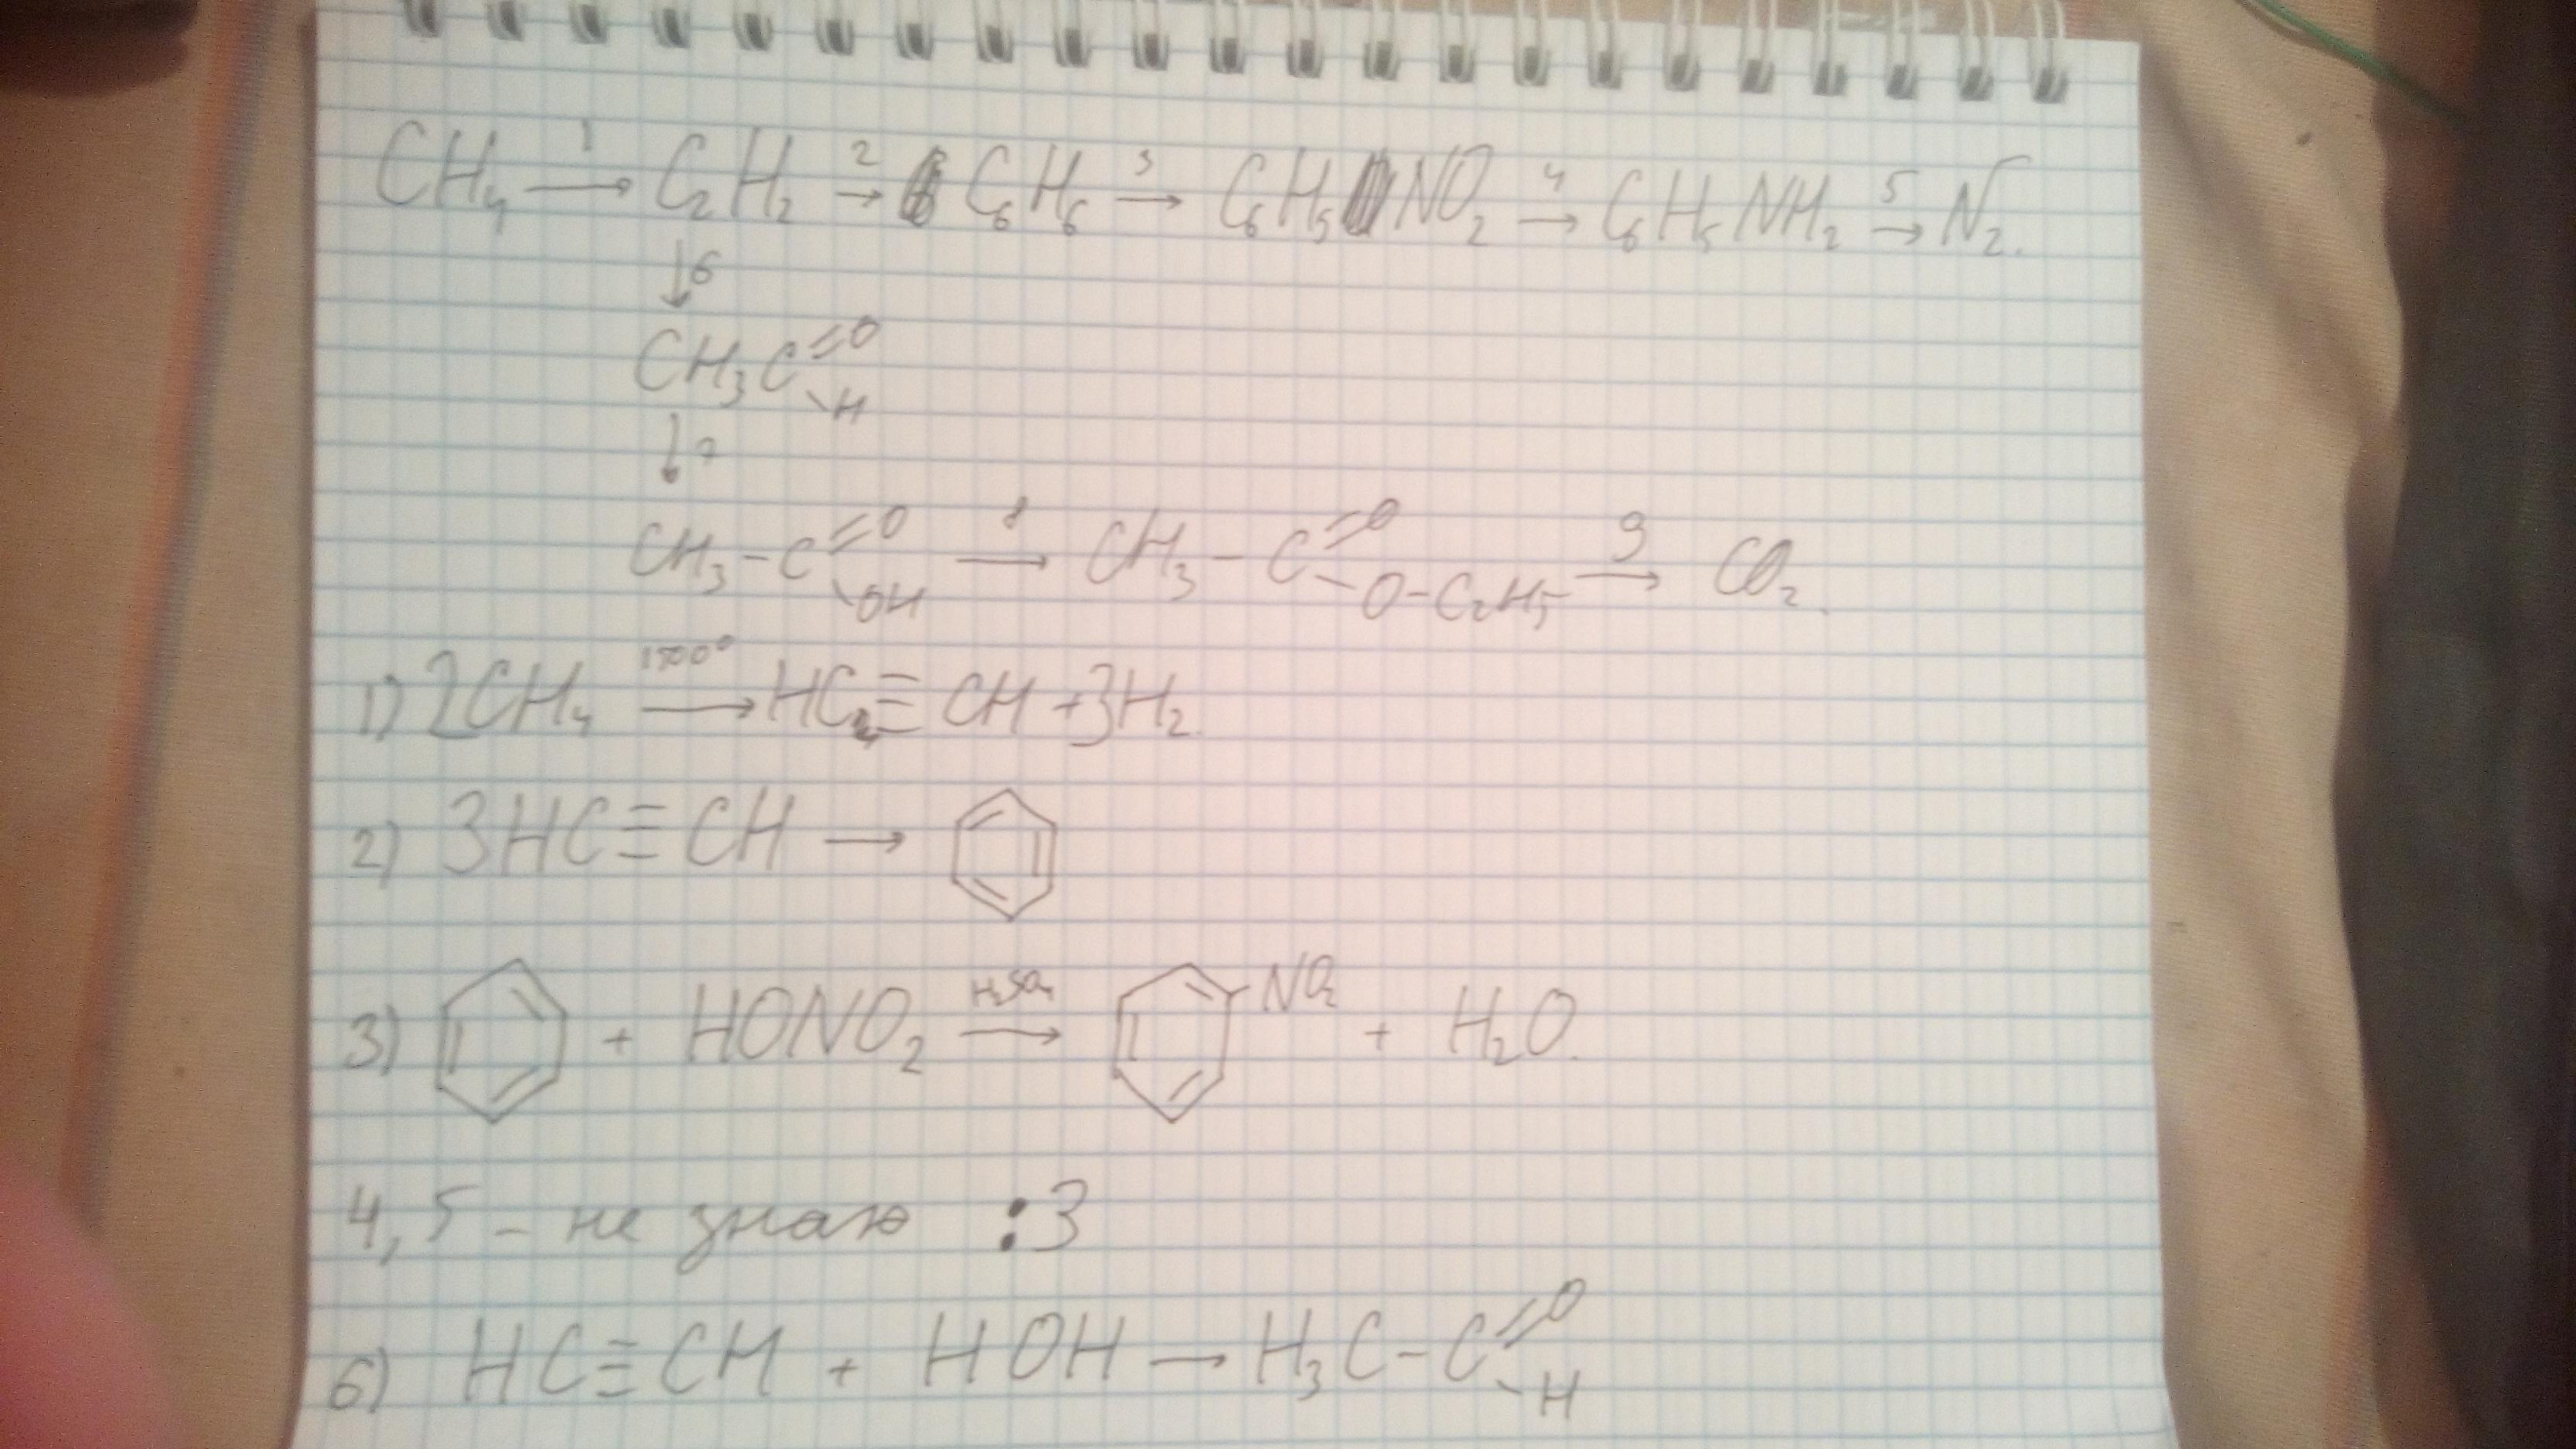 CH₄ →¹ C₂H₂ →² C₆H₆ →³ C₆H₅NO₂ →⁴ C₆H₅NH₂ →⁵ N₂.
↓6
CH₃C=O
\H
↓7
CH₃-C=O \OH →⁸ CH₃-C=O \O-C₂H₅ →⁹ CO₂.
1) 2CH₄ →1500° HC≡CH + 3H₂.
2) 3HC≡CH →
3) + HONO₂ →H₂SO₄ NO₂ + H₂O.
4, 5 - не знаю :3
6) HC≡CH + HOH → H₃C-C=O \H